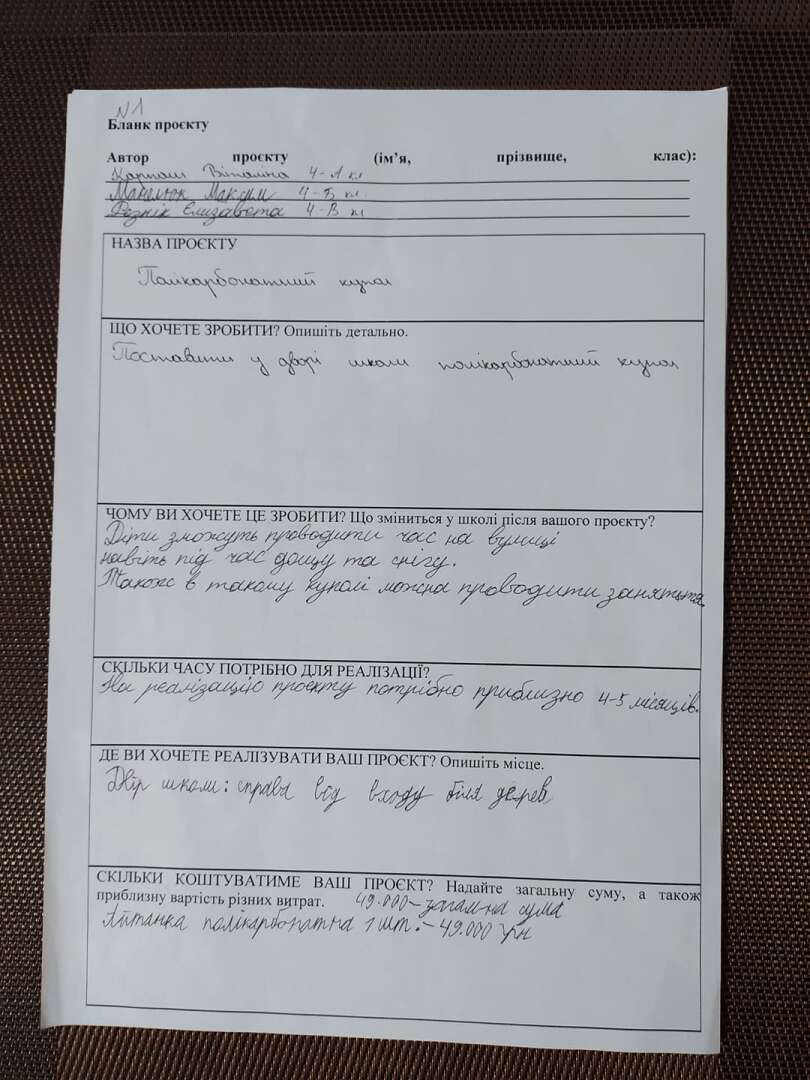 №1
Бланк проєкту
Автор проєкту (ім’я, прізвище, клас):
Карпаш Віталіна 4-А кл
Максим 4-Б кл.
Рєзнік Єлизавета 4-В кл
НАЗВА ПРОЄКТУ
Полікарбонатний купол
ЩО ХОЧЕТЕ ЗРОБИТИ? Опишіть детально.
Поставити у дворі школи полікарбонатний купол
ЧОМУ ВИ ХОЧЕТЕ ЦЕ ЗРОБИТИ? Що зміниться у школі після вашого проєкту?
Діти зможуть проводити час на вулиці
навіть під час дощу та снігу.
Також в такому куполі можна проводити заняття.
СКІЛЬКИ ЧАСУ ПОТРІБНО ДЛЯ РЕАЛІЗАЦІЇ?
На реалізацію проєкту потрібно приблизно 4-5 місяців.
ДЕ ВИ ХОЧЕТЕ РЕАЛІЗУВАТИ ВАШ ПРОЄКТ? Опишіть місце.
Двір школи: справа від входу біля дерев
СКІЛЬКИ КОШТУВАТИМЕ ВАШ ПРОЄКТ? Надайте загальну суму, а також
приблизну вартість різних витрат. 49.000 – загальна сума
полікарбонатна 1 шт. – 49.000 грн